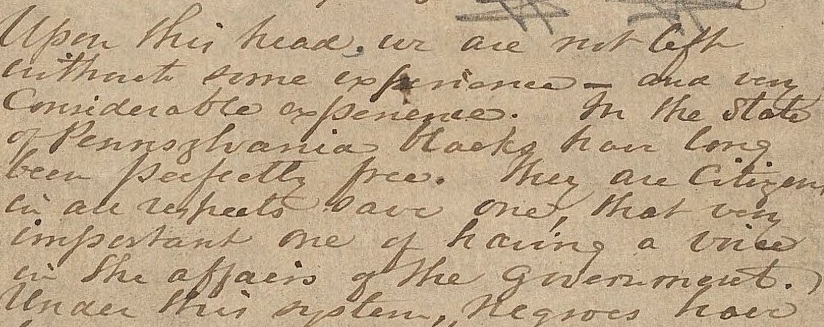 Upon this head, we are not left
without some experience – and very
Considerable experience. In the State
of Pennsylvania blacks have long
been perfectly free. They are Citizens
in all respects save one, that very
important one of having a voice
in the affairs of the Government.
Under this system, Negroes have